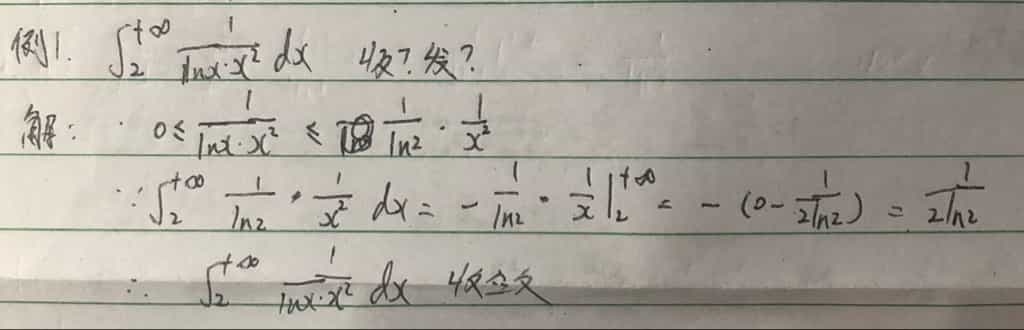 例1. ∫₂^{+∞} 1/(lnx·x²) dx 收?发?
解: ∵ 0 ≤ 1/(lnx·x²) ≤ 1/ln2 · 1/x²
∵ ∫₂^{+∞} 1/ln2 · 1/x² dx = - 1/ln2 · 1/x |₂^{+∞} = - (0 - 1/(2ln2)) = 1/(2ln2)
∴ ∫₂^{+∞} 1/(lnx·x²) dx 收敛